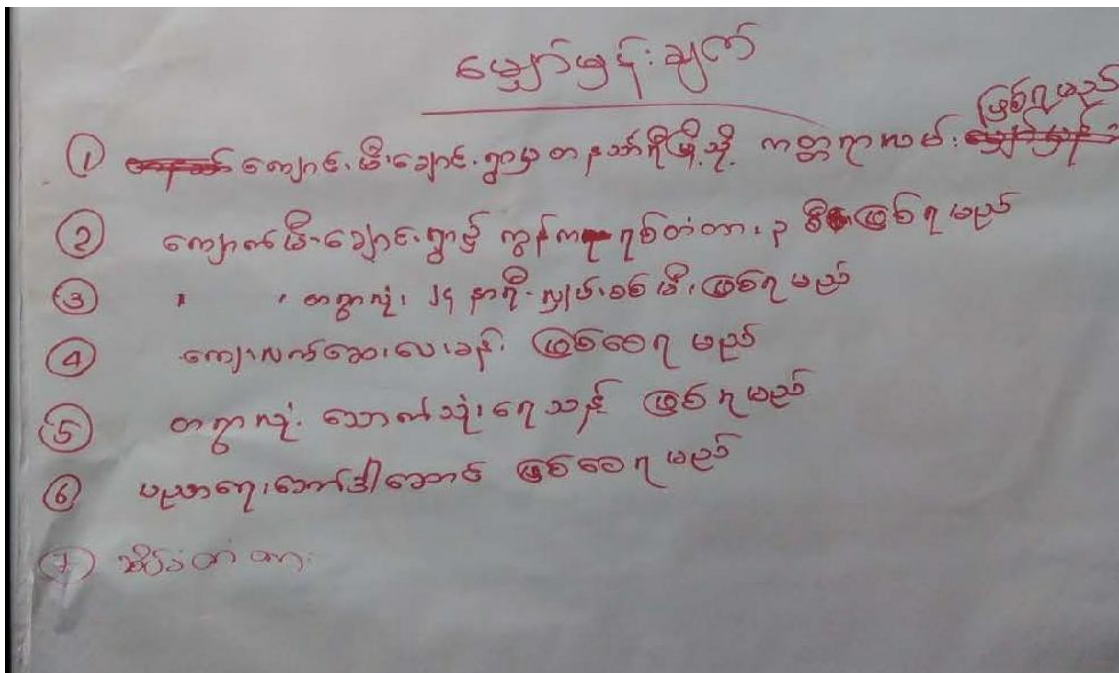 မျှော်မှန်းချက်
ဖြစ်ရမည်
① ကျောင်းမီးချောင်းရွာမှ တနင်္သာရီမြို့သို့ ကတ္တရာလမ်း
② ကျောက်မီးချောင်းရွာ၌ ကွန်က ရစ်တံတား ၃ စီး ဖြစ်ရမည်
③ " " တရွာလုံး ၂၄ နာရီ လျှပ်စစ်မီး ဖြစ်ရမည်
④ ကျေးလက်ဆေးပေးခန်း ဖြစ်စေရမည်
⑤ တရွာလုံး သောက်သုံးရေသန့် ဖြစ်ရမည်
⑥ ပညာရေးဘော်ဒါဆောင် ဖြစ်စေရမည်
⑦ ဆိပ်ခံတံတား